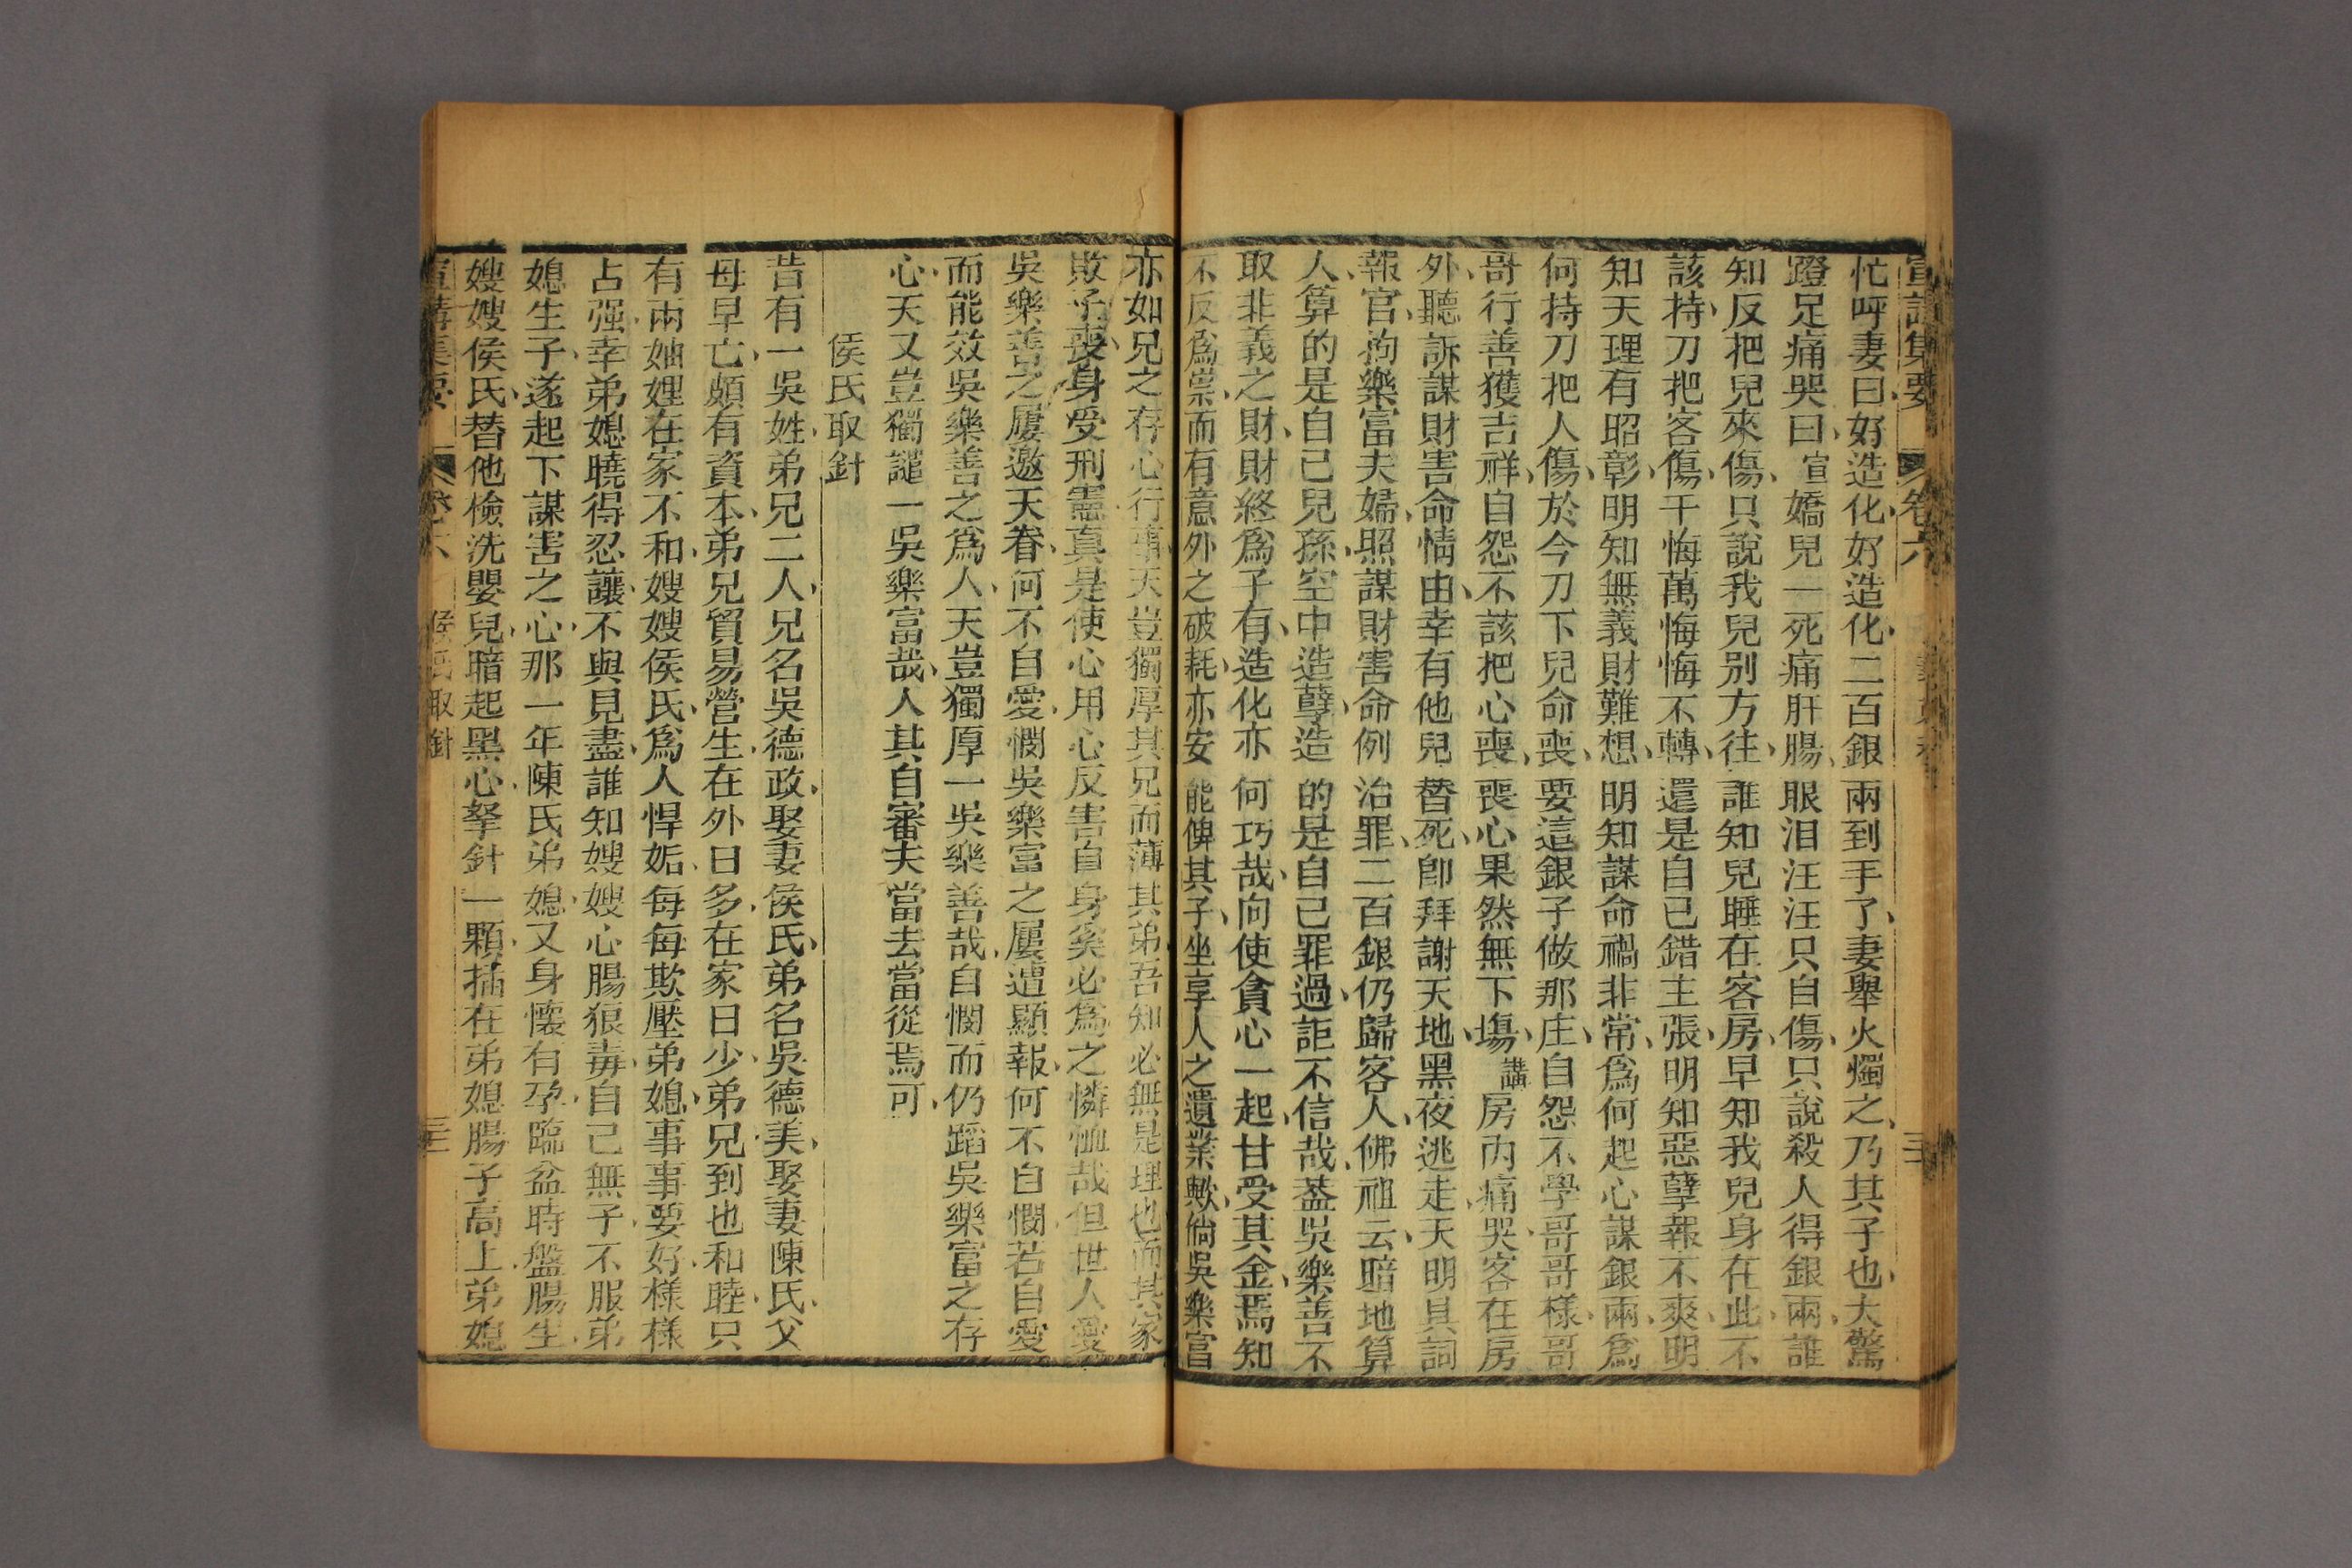 宣講集要 卷六 三
忙呼妻曰好造化好造化二百銀兩到手了妻舉火燭之乃其子也大驚
蹬足痛哭曰宣嬌兒一死痛肝腸眼泪汪汪只自傷只說殺人得銀兩誰
知反把兒來傷只說我兒別方往誰知兒睡在客房早知我兒身在此不
該持刀把客傷千悔萬悔悔不轉還是自己錯主張明知惡孽報不爽明
知天理有昭彰明知無義財難想明知謀命禍非常爲何起心謀銀兩爲
何持刀把人傷於今刀下兒命喪要這銀子做那庄自怨不學哥哥樣哥
哥行善獲吉祥自怨不該把心喪喪心果然無下塲講房內痛哭客在房
外聽訴謀財害命情由幸有他兒替死卽拜謝天地黑夜逃走天明具詞
報官拘樂富夫婦照謀財害命例治罪二百銀仍歸客人佛祖云暗地算
人算的是自己兒孫空中造孽造的是自己罪過詎不信哉葢吳樂善不
取非義之財財終爲子有造化亦何巧哉向使貪心一起甘受其金焉知
不反爲祟而有意外之破耗亦安能俾其子坐享人之遺業歟倘吳樂富
亦如兄之存心行事天豈獨厚其兄而薄其弟吾知必無是理也而其家
敗子喪身受刑憲真是使心用心反害自身奚必爲之憐恤哉但世人愛
吳樂善之屢邀天眷何不自愛憫吳樂富之屢遭顯報何不自憫若自愛
而能效吳樂善之爲人天豈獨厚一吳樂善哉自憫而仍蹈吳樂富之存
心天又豈獨譴一吳樂富哉人其自審夫當去當從焉可
侯氏取針
昔有一吳姓弟兄二人兄名吳德政娶妻侯氏弟名吳德美娶妻陳氏父
母早亡頗有資本弟兄貿易營生在外日多在家日少弟兄到也和睦只
有兩妯娌在家不和嫂嫂侯氏爲人悍妬每每欺壓弟媳事事要好樣樣
占强幸弟媳曉得忍讓不與見盡誰知嫂嫂心腸狼毒自己無子不服弟
媳生子遂起下謀害之心那一年陳氏弟媳又身懷有孕臨盆時盤腸生
嫂嫂侯氏替他檢洗嬰兒暗起黑心拏針一顆插在弟媳腸子高上弟媳
宣講集要 卷六 侯氏取針 三